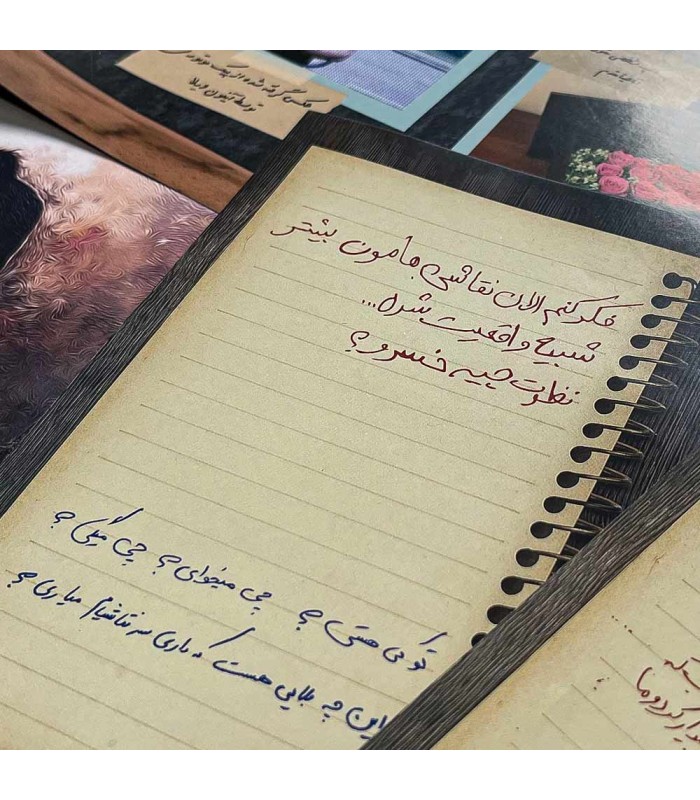 عکس گرفته شده از پیک موتوری
توسط آیفون ویلا
فکر کنم الان نقاشی هامون بیشتر
شبیه واقعیت بشن...
نظرت چیه خسرو؟
تو کی هستی؟ چی میخوای؟ چی میگی؟
این چه بلایی هست که داری سر نقاشیام میاری؟